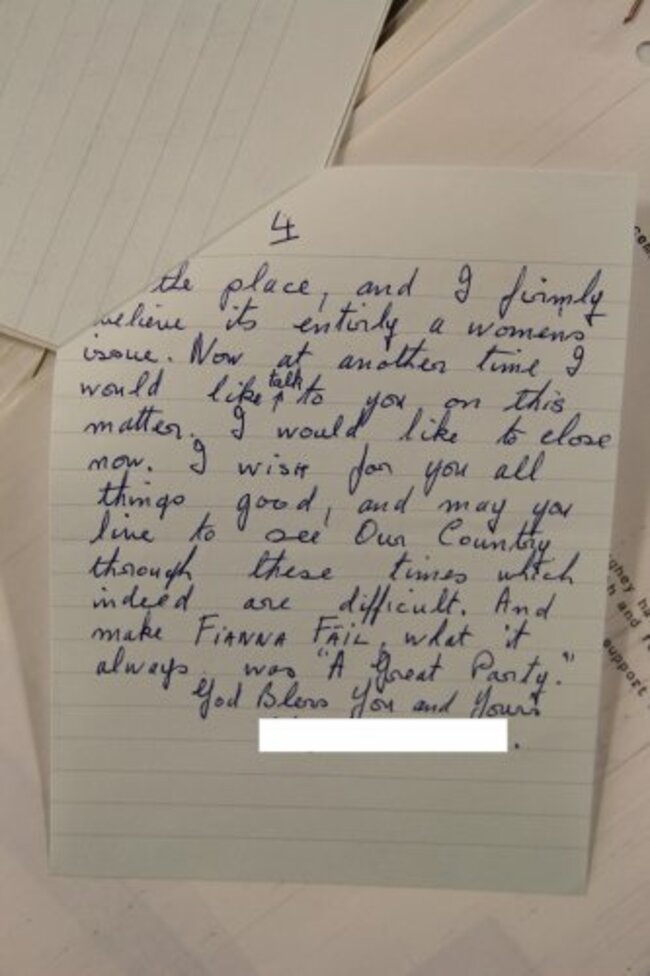 4
the place, and I firmly
believe its entirly a womens
issue. Now at another time I
would like talk to you on this
matter. I would like to close
now. I wish for you all
things good, and may you
live to see Our Country
through these times which
indeed are difficult. And
make FIANNA FÁIL, what it
always was "A Great Party."
God Bless You and Yours
ghey ha
h and
support